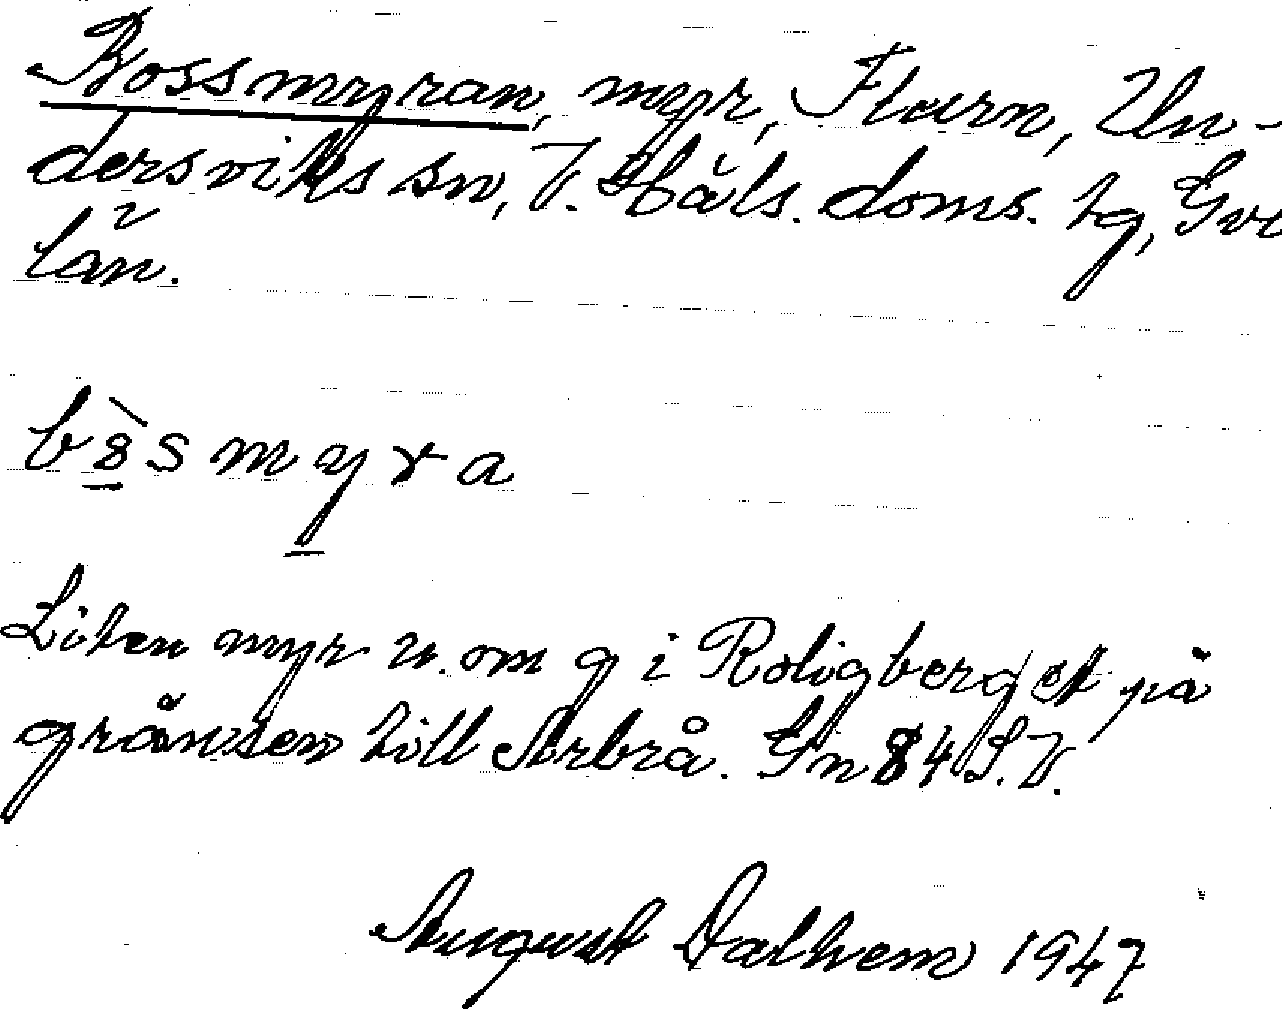 Bossmyran, myr, Flurn, Un-
dersviks sn, V. Häls. doms. tg, Gvl
län.
b8̀smyra
Liten myr n. om g i Roligberget på
gränsen till Arbrå. Gn 84 S.V.
August Dalhem 1947